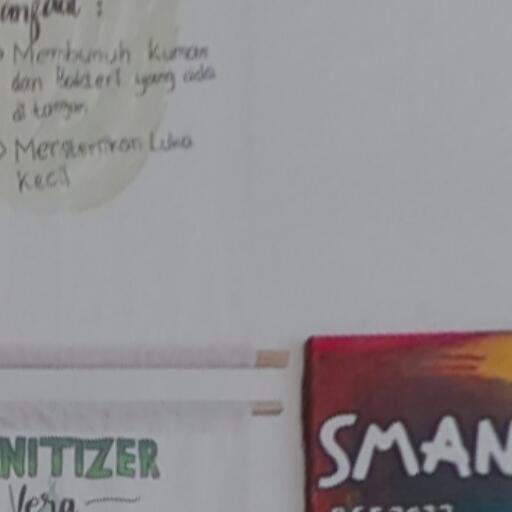 Membunuh kuman
dan bakteri yang ada
di tangan
Mensterilkan Luka
kecil
NITIZER
Vera
SMAN